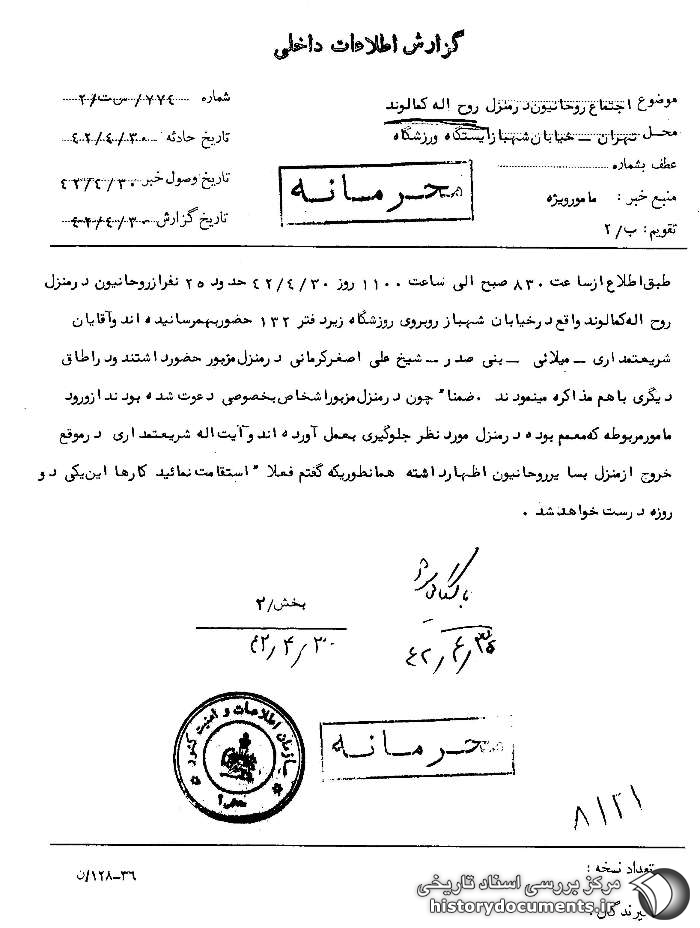 گزارش اطلاعات داخلی
موضوع اجتماع روحانیون در منزل روح اله کمالوند
شماره ۷۷۴/س ت/۲
محل تهران – خیابان شهباز ایستگاه ورزشگاه
تاریخ حادثه ۴۲/۴/۳۰
عطف بشماره
تاریخ وصول خبر ۴۲/۴/۳۰
منبع خبر: مامور ویژه
تاریخ گزارش ۴۲/۴/۳۰
تقویم: ب/۲
محرمانه
طبق اطلاع از ساعت ۸۳۰ صبح الی ساعت ۱۱۰۰ روز ۴۲/۴/۳۰ حدود ۲۵ نفر از روحانیون در منزل
روح اله کمالوند واقع در خیابان شهباز روبروی روزشگاه زیر دفتر ۱۳۲ حضور بهمرسانیده اند و آقایان
شریعتمداری – میلانی – بنی صدر – شیخ علی اصغر کرمانی در منزل مزبور حضور داشتند و در اطاق
دیگری با هم مذاکره مینمودند . ضمنا" چون در منزل مزبور اشخاص بخصوصی دعوت شده بودند از ورود
مامور مربوطه که معمم بوده در منزل مورد نظر جلوگیری بعمل آورده اند و آیت اله شریعتمداری در موقع
خروج از منزل بسایر روحانیون اظهار داشته همانطوریکه گفتم فعلا" استقامت نمائید کارها این یکی دو
روزه درست خواهد شد .
بخش/۲
۴۲/۴/۳۰
۴۲/۴/۳۵
سازمان اطلاعات و امنیت کشور
محرمانه
۸۱۲۱
تعداد نسخه :
۳۶–۱۲۸/ن
گیرندگان :
مرکز بررسی اسناد تاریخی
historydocuments.ir